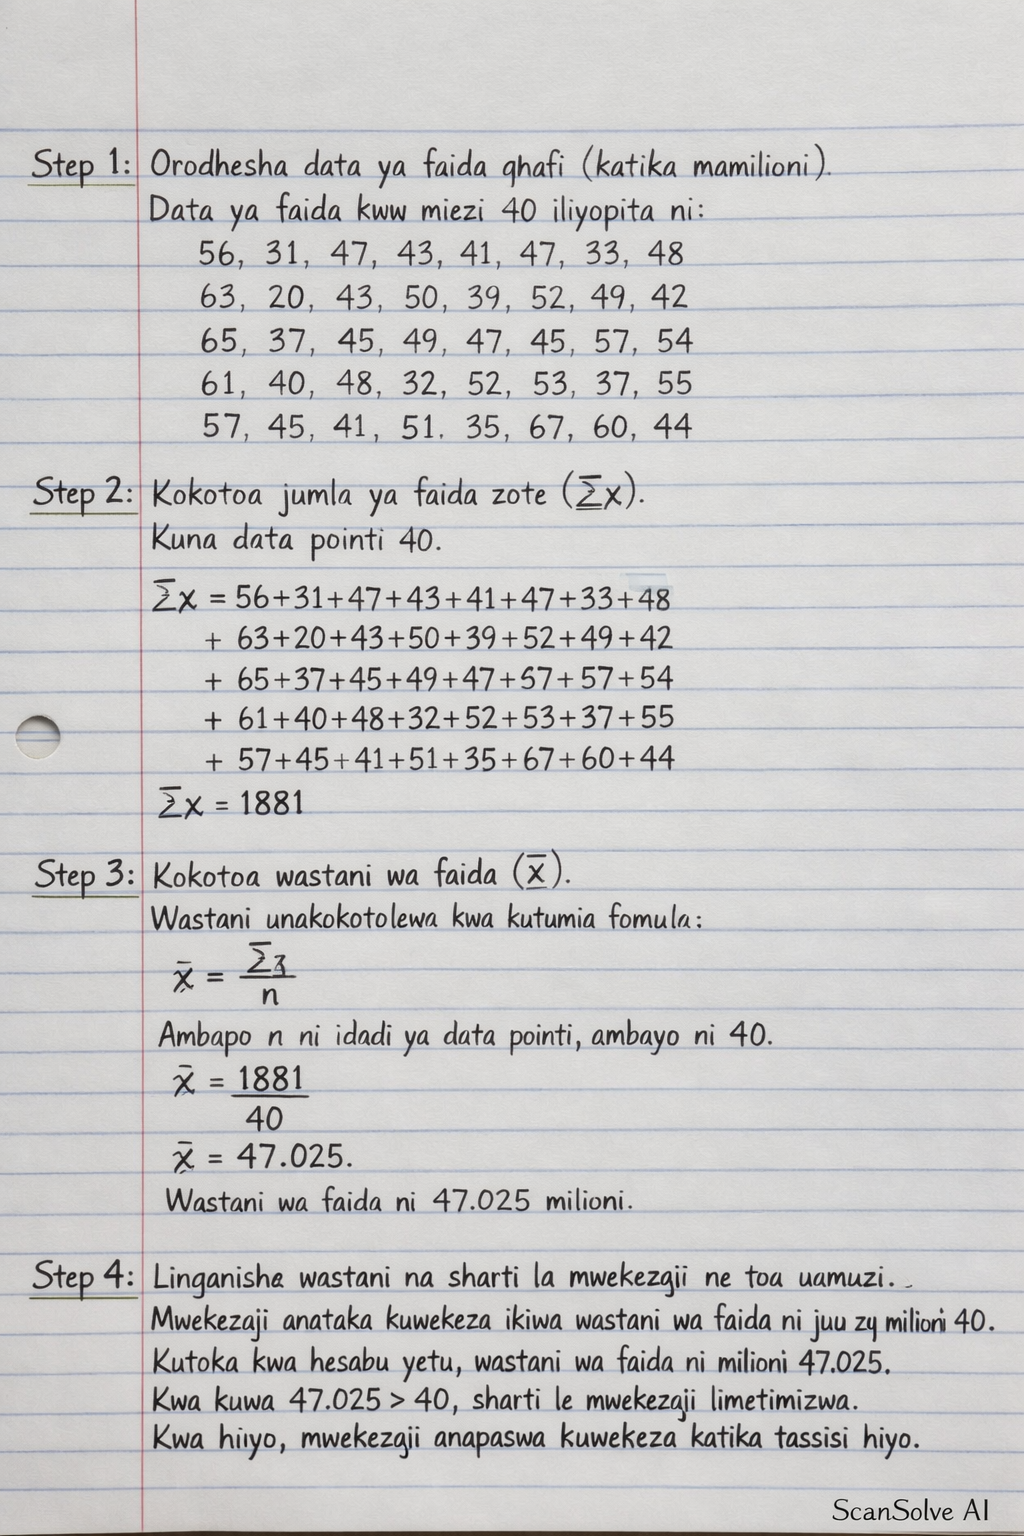 Step 1: Orodhesha data ya faida ghafi (katika mamilioni).
Data ya faida kww miezi 40 iliyopita ni:
56, 31, 47, 43, 41, 47, 33, 48
63, 20, 43, 50, 39, 52, 49, 42
65, 37, 45, 49, 47, 45, 57, 54
61, 40, 48, 32, 52, 53, 37, 55
57, 45, 41, 51. 35, 67, 60, 44
Step 2: Kokotoa jumla ya faida zote (Σx).
Kuna data pointi 40.
Σx = 56+31+47+43+41+47+33+48
+ 63+20+43+50+39+52+49+42
+ 65+37+45+49+47+57+57+54
+ 61+40+48+32+52+53+37+55
+ 57+45+41+51+35+67+60+44
Σx = 1881
Step 3: Kokotoa wastani wa faida (x̄).
Wastani unakokotolewa kwa kutumia fomula:
x̄ = Σʒ
n
Ambapo n ni idadi ya data pointi, ambayo ni 40.
x̄ = 1881
40
x̄ = 47.025.
Wastani wa faida ni 47.025 milioni.
Step 4: Linganisha wastani na sharti la mwekezgji ne toa uamuzi.
Mwekezaji anataka kuwekeza ikiwa wastani wa faida ni juu zy milioni 40.
Kutoka kwa hesabu yetu, wastani wa faida ni milioni 47.025.
Kwa kuwa 47.025 > 40, sharti le mwekezaji limetimizwa.
Kwa hiiyo, mwekezgji anapaswa kuwekeza katika tassisi hiyo.
ScanSolve AI